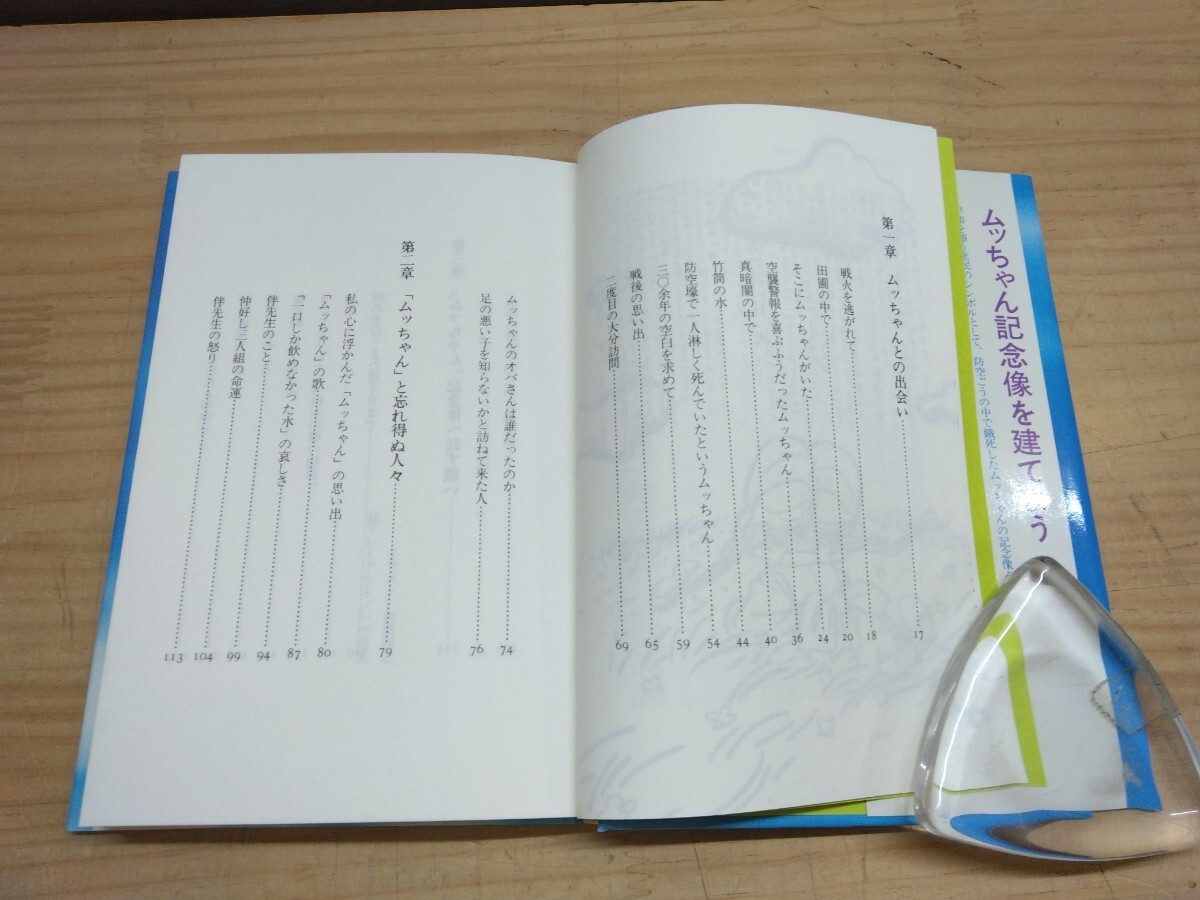 ムッちゃん記念像を建て
う
防空ごうの中で餓死したムッちゃんの記念像
第一章　ムッちゃんとの出会い 17
戦火を逃がれて 18
田圃の中で 20
そこにムッちゃんがいた 24
空襲警報を喜ぶふうだったムッちゃん 36
真暗闇の中で 40
竹筒の水 44
防空壕で一人淋しく死んでいたというムッちゃん 54
三〇余年の空白を求めて 59
戦後の思い出 65
二度目の大分訪問 69
ムッちゃんのオバさんは誰だったのか 74
足の悪い子を知らないかと訪ねて来た人 76
第二章　「ムッちゃん」と忘れ得ぬ人々 79
私の心に浮かんだ「ムッちゃん」の思い出 80
「ムッちゃん」の歌 87
「一口しか飲めなかった水」の哀しさ 94
伴先生のこと 99
仲好し三人組の命運 104
伴先生の怒り 113